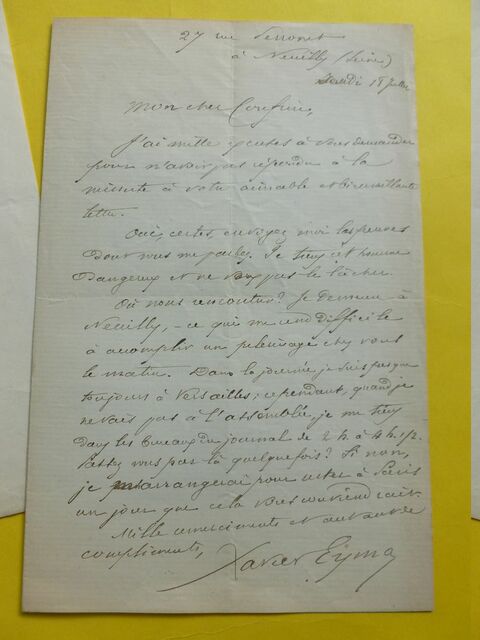 27 rue Perronet
à Neuilly (Seine)
Jeudi 18 Juillet
Mon cher Confrère,
J'ai mille excuses à vous demander
pour n'avoir pas répondu à la
minute à votre aimable et bienveillante
lettre.
Oui, certes, envoyez moi les preuves
dont vous me parlez. Je tiens cet homme
dangereux et ne veux pas le lâcher.
Où nous rencontrer? Je demeure à
Neuilly, - ce qui me rend difficile
à accomplir un pèlerinage chez vous
le matin. Dans la journée je suis presque
toujours à Versailles; cependant, quand je
ne vais pas à l'assemblée, je me tiens
dans les bureaux du journal de 2 h. à 4 h. 1/2.
Passez vous pas là quelquefois? Si non,
je m'arrangerai pour rester à Paris
un jour que cela vous conviendrait.
Mille remerciements et autant de
compliments,
Xavier Eyma